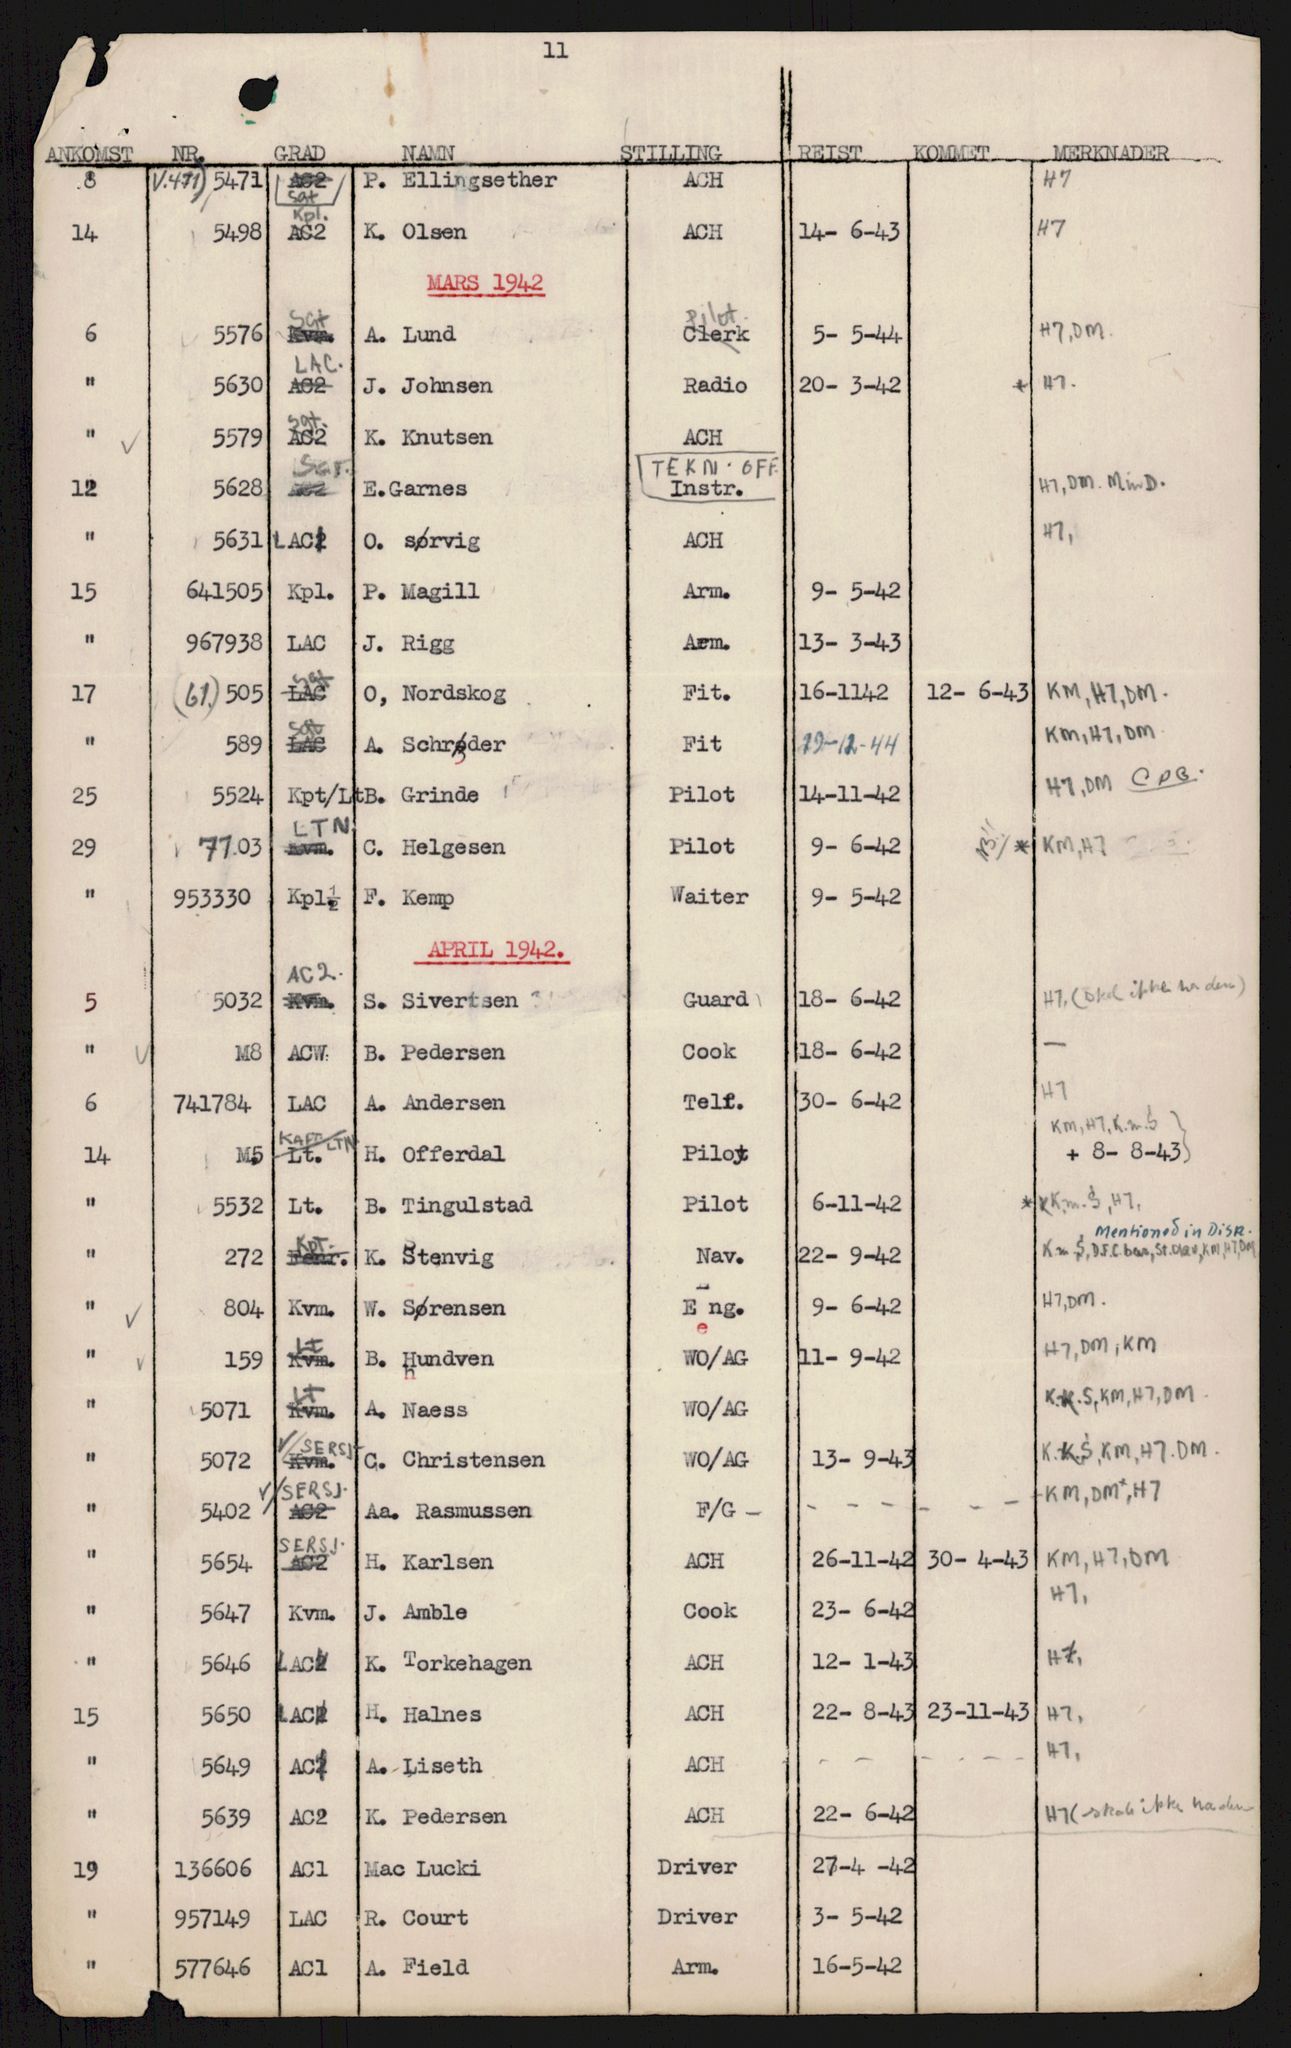 11
ANKOMST NR. GRAD NAMN STILLING REIST KOMMET MERKNADER
8 (V.471) 5471 AC2 Sgt P. Ellingsether ACH H7
14 5498 AC2 Kpl. K. Olsen ACH 14- 6-43 H7
MARS 1942
6 5576 Kvm. Sgt A. Lund Clerk Pilot. 5- 5-44 H7, DM.
" 5630 AC2 LAC. J. Johnsen Radio 20- 3-42 * H7.
" 5579 AC2 Sgt. K. Knutsen ACH
12 5628 AC2 Sgt. E.Garnes TEKN. OFF. Instr. H7, DM. MinD.
" 5631 LAC2 O. sørvig ACH H7,
15 641505 Kpl. P. Magill Arm. 9- 5-42
" 967938 LAC J. Rigg Arm. 13- 3-43
17 (61.) 505 LAC Sgt O, Nordskog Fit. 16-1142 12- 6-43 KM, H7, DM.
" 589 LAC Sgt A. Schrøder Fit 29-12-44 KM, H7, DM
25 5524 Kpt/Lt B. Grinde Pilot 14-11-42 H7, DM CPB.
29 7703 Kvm. LTN C. Helgesen Pilot 9- 6-42 * KM, H7
" 953330 Kpl.½ F. Kemp Waiter 9- 5-42
APRIL 1942.
5 5032 Kvm. AC2. S. Sivertsen Guard 18- 6-42 H7, (skal ikke ha den)
" M8 ACW. B. Pedersen Cook 18- 6-42 —
6 741784 LAC A. Andersen Telf. 30- 6-42 H7
14 M5 Lt. KAPT LTN H. Offerdal Pilot KM, H7, K.m.S
+ 8- 8-43)
" 5532 Lt. B. Tingulstad Pilot 6-11-42 * K.m.S, H7,
Mentioned in Disp.
" 272 Fenr. Kpt. K. Stenvig Nav. 22- 9-42 K.m.S, D.F.C. bar, St.Olav, KM, H7, DM
" 804 Kvm. W. Sørensen E ng. 9- 6-42 H7, DM.
e
" 159 Kvm. Lt B. Hundven WO/AG 11- 9-42 H7, DM, KM
h
" 5071 Kvm. Lt A. Naess WO/AG K.K.S, KM, H7, DM.
" 5072 Kvm. V/SERSJ. C. Christensen WO/AG 13- 9-43 K.K.S, KM, H7. DM.
" 5402 AC2 V/SERSJ. Aa. Rasmussen F/G — - - - - - - KM, DM+, H7
" 5654 AC2 SERSJ. H. Karlsen ACH 26-11-42 30- 4-43 KM, H7, DM
" 5647 Kvm. J. Amble Cook 23- 6-42 H7,
" 5646 LAC2 K. Torkehagen ACH 12- 1-43 H7,
15 5650 LAC2 H. Halnes ACH 22- 8-43 23-11-43 H7,
" 5649 AC1 A. Liseth ACH - - - - - - H7,
" 5639 AC2 K. Pedersen ACH 22- 6-42 H7 (skal ikke ha den
19 136606 AC1 Mac Lucki Driver 27-4 -42
" 957149 LAC R. Court Driver 3- 5-42
" 577646 AC1 A. Field Arm. 16-5-42